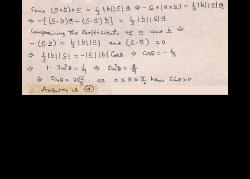 Since (a×b)×c = 1/3 |b||c| a ⇒ -c×(a×b) = 1/3 |b||c| a
⇒ -[(c.b)a - (c.a)b] = 1/3 |b||c| a
Comparing the coefficients of a and b ⇒
-(c.b) = 1/3 |b||c| and (c.a) = 0
⇒ 1/3 |b||c| = -|c||b| cosθ ⇒ cosθ = -1/3
⇒ 1 - sin²θ = 1/9 ⇒ sin²θ = 8/9
⇒ sinθ = 2√2/3 as 0 ≤ θ ≤ π, here sinθ>0
∴ Answer is